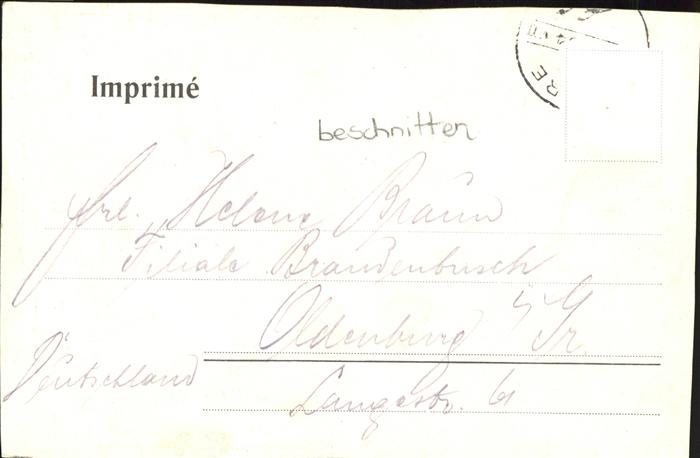 RE
Imprimé
beschnitten
Frl. Helene Braun
Filiale Brandenbusch
Oldenburg i/Gr.
Deutschland
Langestr. 61